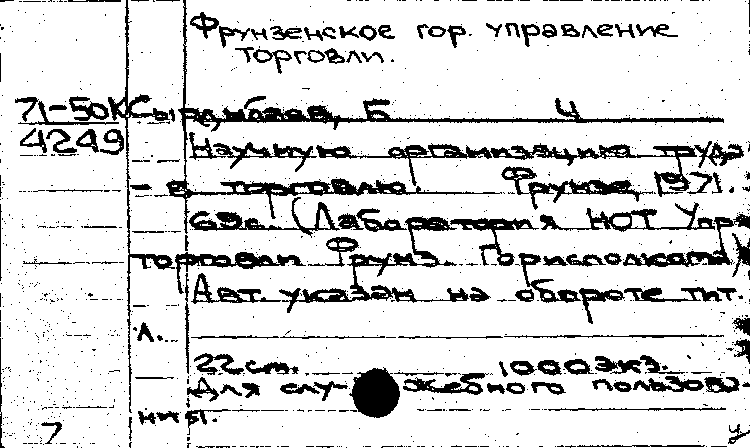 Фрунзенское гор. управление
торговли.
71-50К Сыдыбаев, Б Ч
4249
Научную организацию труда
- в торговлю. Фрунзе, 1971.
69с. (Лаборатория НОТ Упр.
торговли Фрунз. Горисполкома)
Авт. указан на обороте тит.
л.
22 см. 1000 экз.
Для служебного пользова-
ния.
7 у